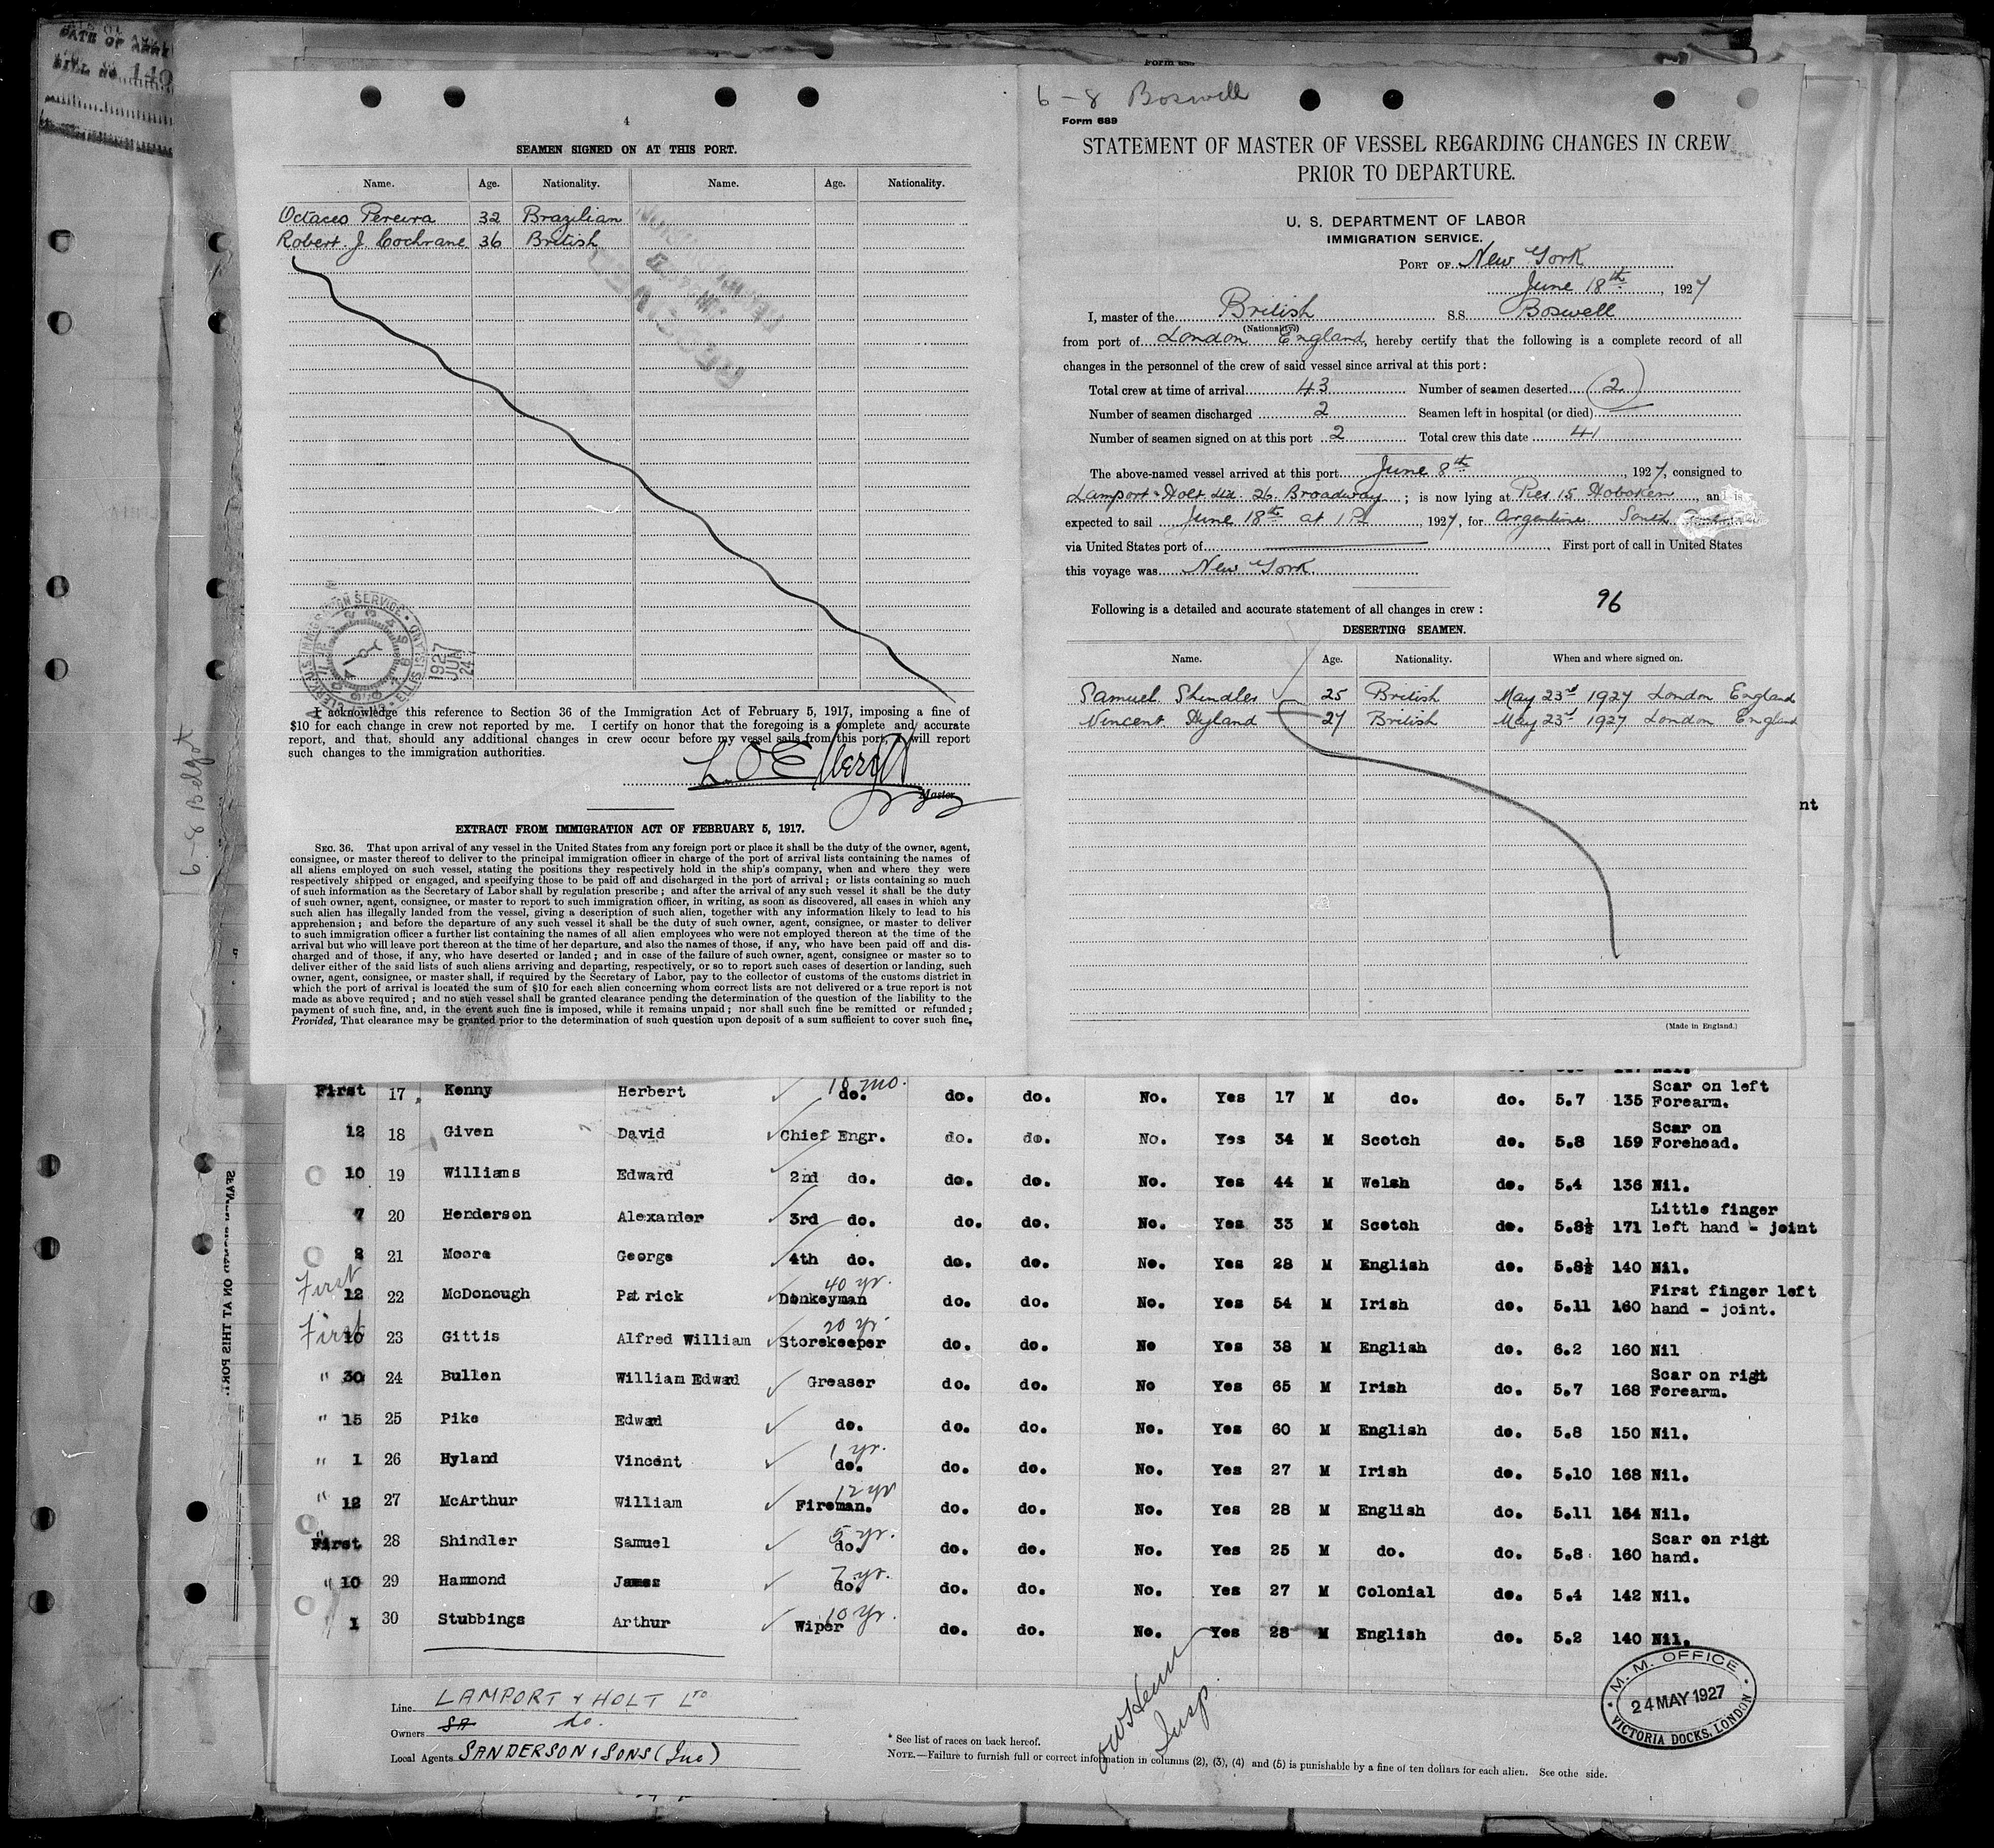 DATE OF ARRI
BILL No. 140
Form 689
4
SEAMEN SIGNED ON AT THIS PORT.
Name. Age. Nationality. Name. Age. Nationality.
Octaceo Pereira 32 Brazilian
Robert. J. Cochrane 36 British
RECEIVED
U.S. IMMIGRATION SERVICE ELLIS ISLAND
1927 JUN 24
I acknowledge this reference to Section 36 of the Immigration Act of February 5, 1917, imposing a fine of
$10 for each change in crew not reported by me. I certify on honor that the foregoing is a complete and accurate
report, and that, should any additional changes in crew occur before my vessel sails from this port, I will report
such changes to the immigration authorities.
Master.
EXTRACT FROM IMMIGRATION ACT OF FEBRUARY 5, 1917.
SEC. 36. That upon arrival of any vessel in the United States from any foreign port or place it shall be the duty of the owner, agent,
consignee, or master thereof to deliver to the principal immigration officer in charge of the port of arrival lists containing the names of
all aliens employed on such vessel, stating the positions they respectively hold in the ship's company, when and where they were
respectively shipped or engaged, and specifying those to be paid off and discharged in the port of arrival; or lists containing so much
of such information as the Secretary of Labor shall by regulation prescribe; and after the arrival of any such vessel it shall be the duty
of such owner, agent, consignee, or master to report to such immigration officer, in writing, as soon as discovered, all cases in which any
such alien has illegally landed from the vessel, giving a description of such alien, together with any information likely to lead to his
apprehension; and before the departure of any such vessel it shall be the duty of such owner, agent, consignee, or master to deliver
to such immigration officer a further list containing the names of all alien employees who were not employed thereon at the time of the
arrival but who will leave port thereon at the time of her departure, and also the names of those, if any, who have been paid off and dis-
charged and of those, if any, who have deserted or landed; and in case of the failure of such owner, agent, consignee or master so to
deliver either of the said lists of such aliens arriving and departing, respectively, or so to report such cases of desertion or landing, such
owner, agent, consignee, or master shall, if required by the Secretary of Labor, pay to the collector of customs of the customs district in
which the port of arrival is located the sum of $10 for each alien concerning whom correct lists are not delivered or a true report is not
made as above required; and no such vessel shall be granted clearance pending the determination of the question of the liability to the
payment of such fine, and, in the event such fine is imposed, while it remains unpaid; nor shall such fine be remitted or refunded;
Provided, That clearance may be granted prior to the determination of such question upon deposit of a sum sufficient to cover such fine,
6-8 Boswell
Form 689
STATEMENT OF MASTER OF VESSEL REGARDING CHANGES IN CREW
PRIOR TO DEPARTURE.
U. S. DEPARTMENT OF LABOR
IMMIGRATION SERVICE.
PORT OF New York
June 18th, 1927
I, master of the British S.S. Boswell
(Nationality)
from port of London England, hereby certify that the following is a complete record of all
changes in the personnel of the crew of said vessel since arrival at this port:
Total crew at time of arrival 43 Number of seamen deserted 2
Number of seamen discharged 2 Seamen left in hospital (or died)
Number of seamen signed on at this port 2 Total crew this date 41
The above-named vessel arrived at this port June 8th, 1927, consigned to
Lamport & Holt Ltd. 26 Broadway; is now lying at Pier 15 Hoboken, and is
expected to sail June 18th at 1 P, 1927, for Argentine South
via United States port of First port of call in United States
this voyage was New York
Following is a detailed and accurate statement of all changes in crew: 96
DESERTING SEAMEN.
Name. Age. Nationality. When and where signed on.
Samuel Shindler 25 British May 23rd 1927 London England
Vincent Hyland 27 British May 23rd 1927 London England
(Made in England.)
nt
6-8 Bedgot
SEAMEN SIGNED ON AT THIS PORT.
First 17 Kenny Herbert 18 mo. do. do. do. No. Yes 17 M do. do. 5.7 135 Scar on left Forearm.
12 18 Given David Chief Engr. do. do. No. Yes 34 M Scotch do. 5.8 159 Scar on Forehead.
10 19 Williams Edward 2nd do. do. do. No. Yes 44 M Welsh do. 5.4 136 Nil.
7 20 Henderson Alexander 3rd do. do. do. No. Yes 33 M Scotch do. 5.8½ 171 Little finger left hand - joint
2 21 Moore George 4th do. do. do. No. Yes 28 M English do. 5.8½ 140 Nil.
First 12 22 McDonough Patrick 40 yr. Donkeyman do. do. No. Yes 54 M Irish do. 5.11 160 First finger left hand - joint.
First 10 23 Gittis Alfred William 20 yr. Storekeeper do. do. No Yes 38 M English do. 6.2 160 Nil
" 30 24 Bullen William Edward Greaser do. do. No Yes 65 M Irish do. 5.7 168 Scar on right Forearm.
" 15 25 Pike Edward do. do. do. No. Yes 60 M English do. 5.8 150 Nil.
" 1 26 Hyland Vincent 1 yr. do. do. do. No. Yes 27 M Irish do. 5.10 168 Nil.
" 12 27 McArthur William 12 yr Fireman. do. do. No. Yes 28 M English do. 5.11 154 Nil.
First 28 Shindler Samuel 5 yr. do. do. do. No. Yes 25 M do. do. 5.8 160 Scar on right hand.
" 10 29 Hammond James 7 yr. do. do. do. No. Yes 27 M Colonial do. 5.4 142 Nil.
" 1 30 Stubbings Arthur 10 yr. Wiper do. do. No. Yes 28 M English do. 5.2 140 Nil.
Line LAMPORT & HOLT LTD
Owners do.
Local Agents SANDERSON & SONS (Inc)
Insp.
* See list of races on back hereof.
NOTE.—Failure to furnish full or correct information in columns (2), (3), (4) and (5) is punishable by a fine of ten dollars for each alien. See othe side.
M. M. OFFICE
24 MAY 1927
VICTORIA DOCKS, LONDON